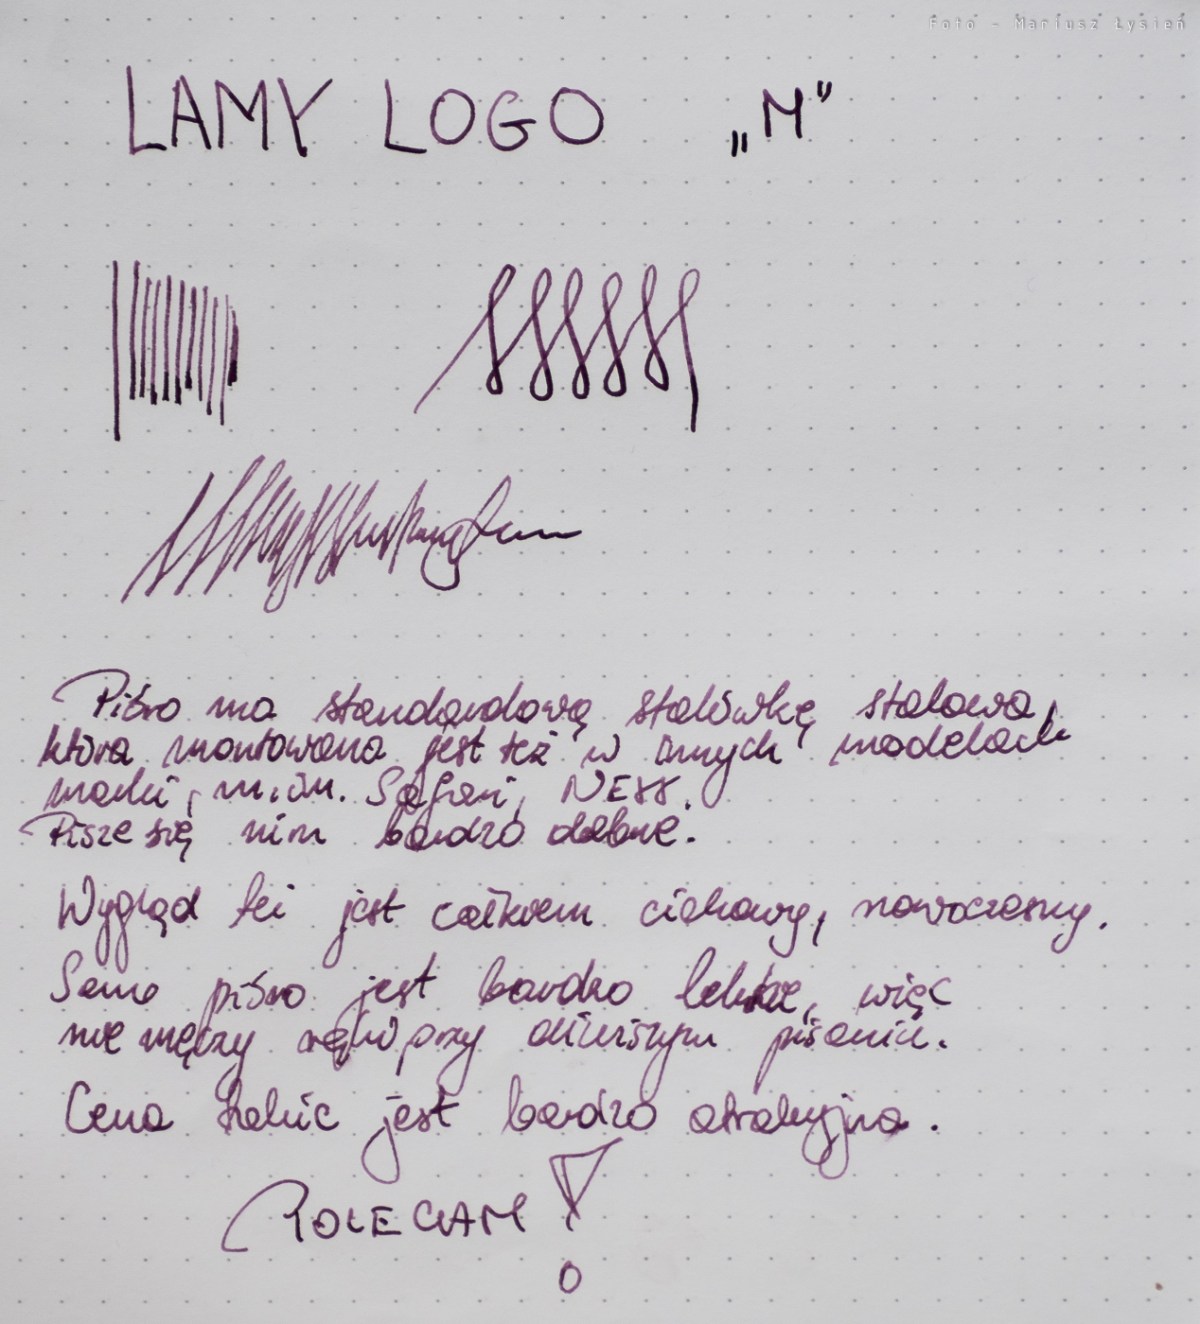 Foto - Mariusz Łysień
LAMY LOGO „M”
Pióro ma standardową stalówkę stalową,
która montowana jest też w innych modelach
marki, m.in. Safari, NEXX.
Pisze się nim bardzo dobrze.
Wygląd też jest całkiem ciekawy, nowoczesny.
Samo pióro jest bardzo lekkie, więc
nie męczy ręki przy dłuższym pisaniu.
Cena także jest bardzo atrakcyjna.
POLECAM!